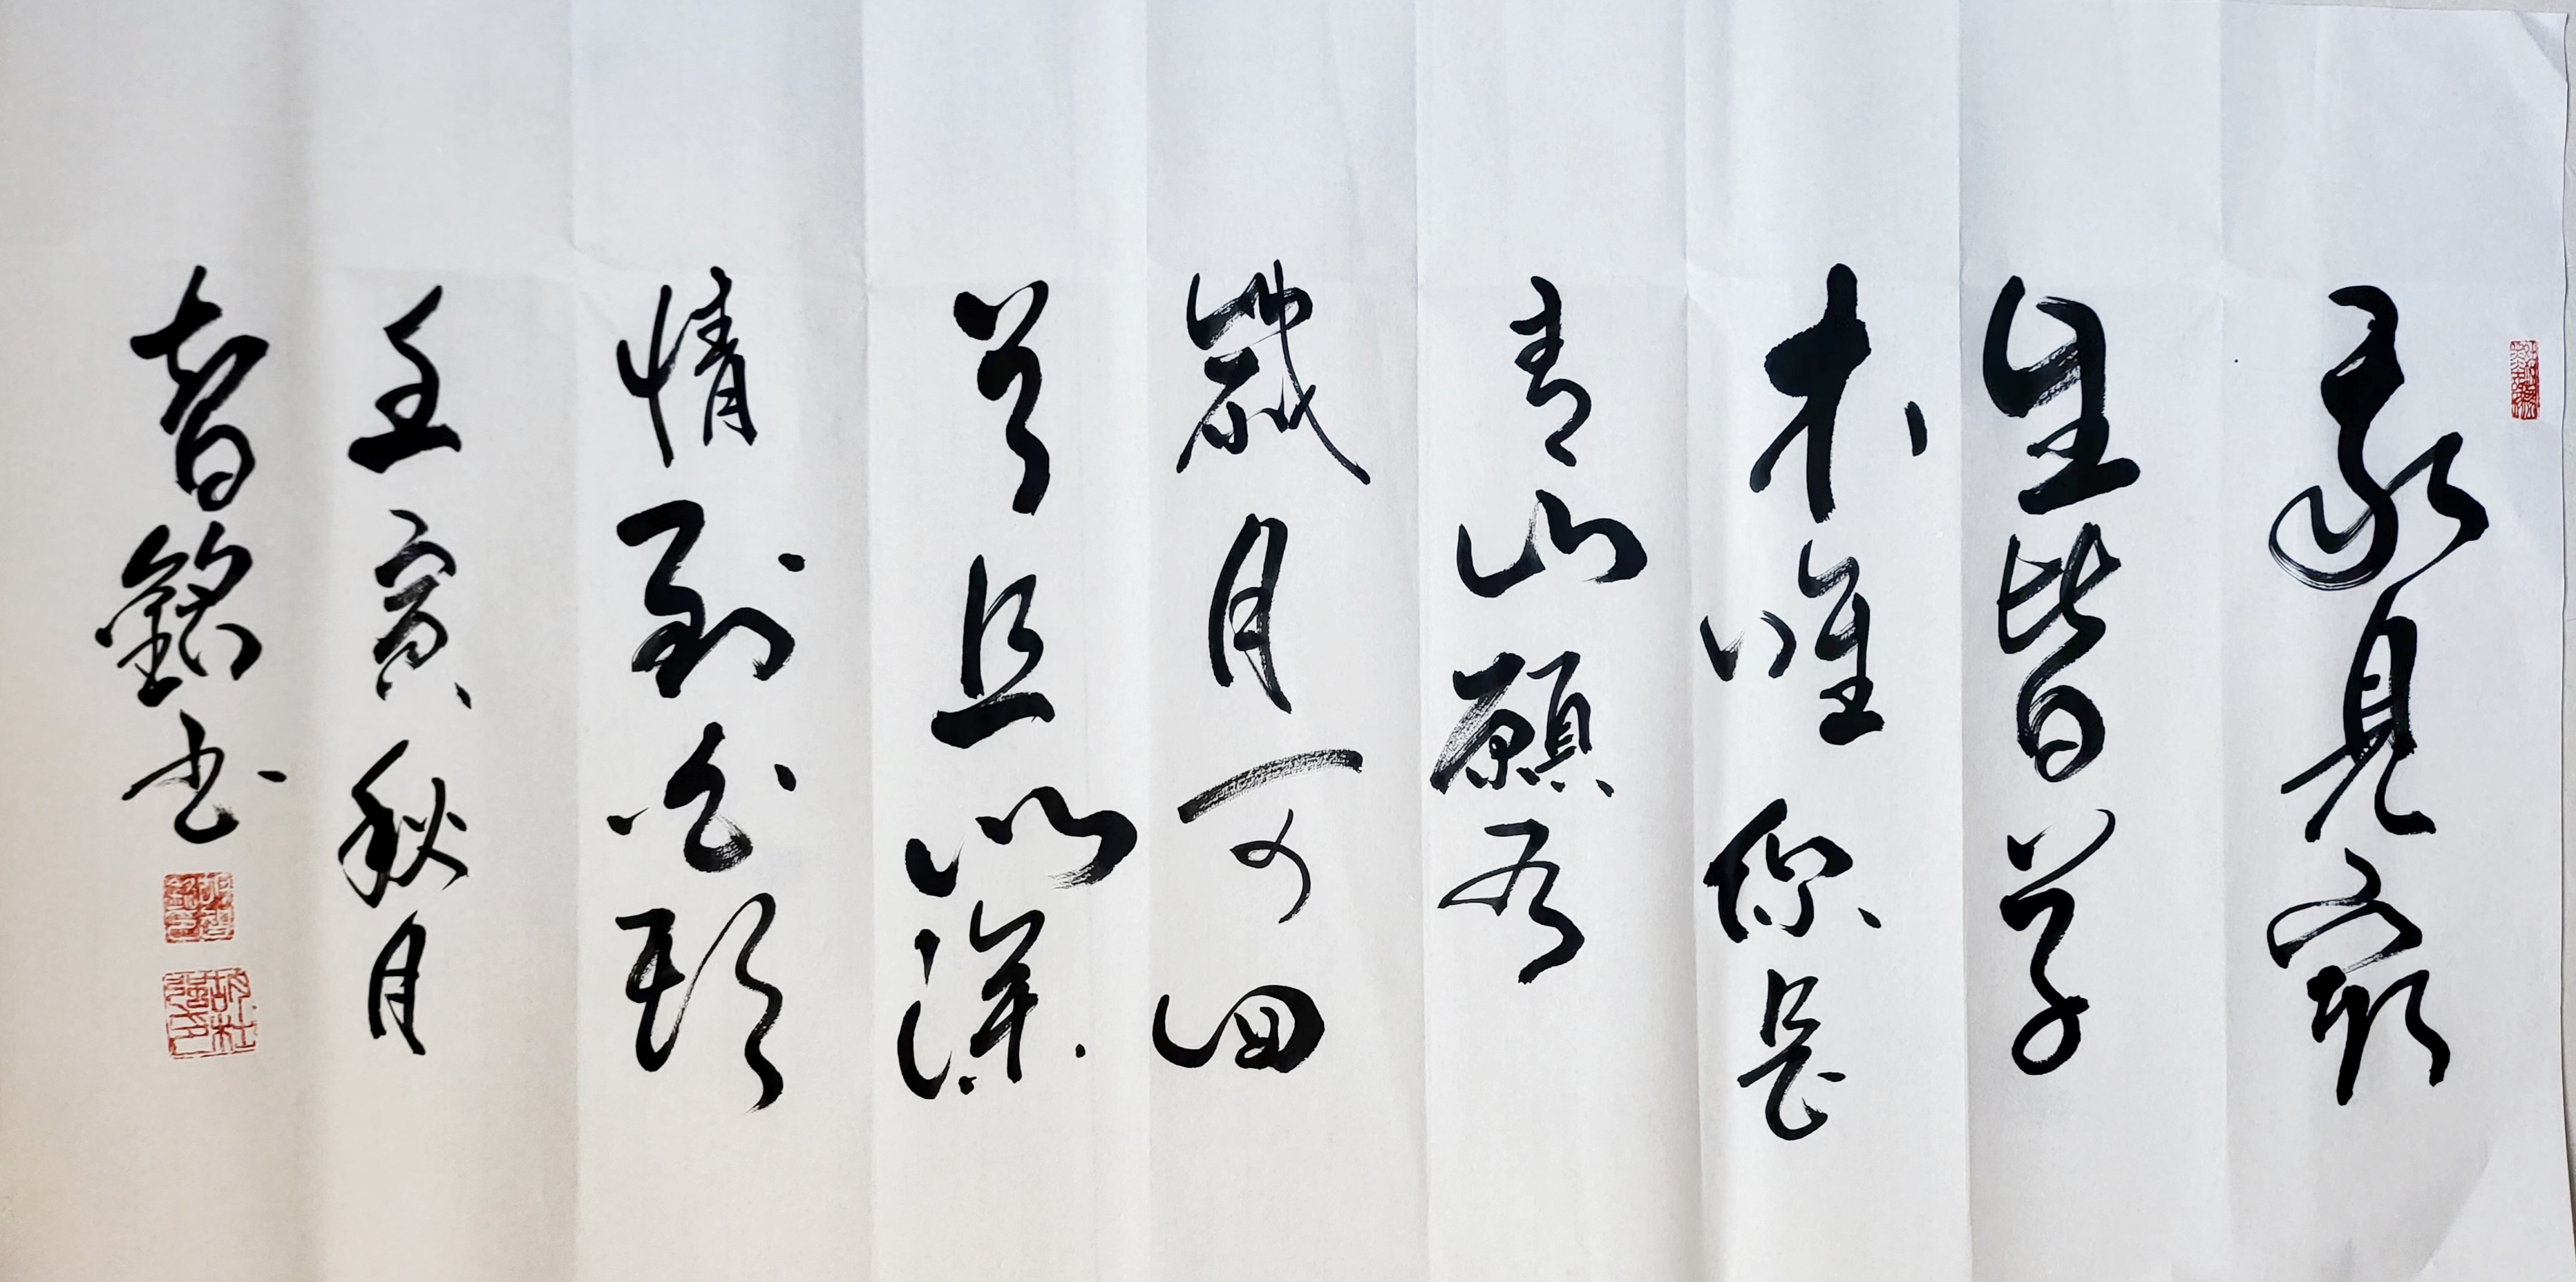 我見眾
生皆草
木唯你是
青山願有
歲月可回
首且以深
情到白頭
壬寅秋月
智銘书